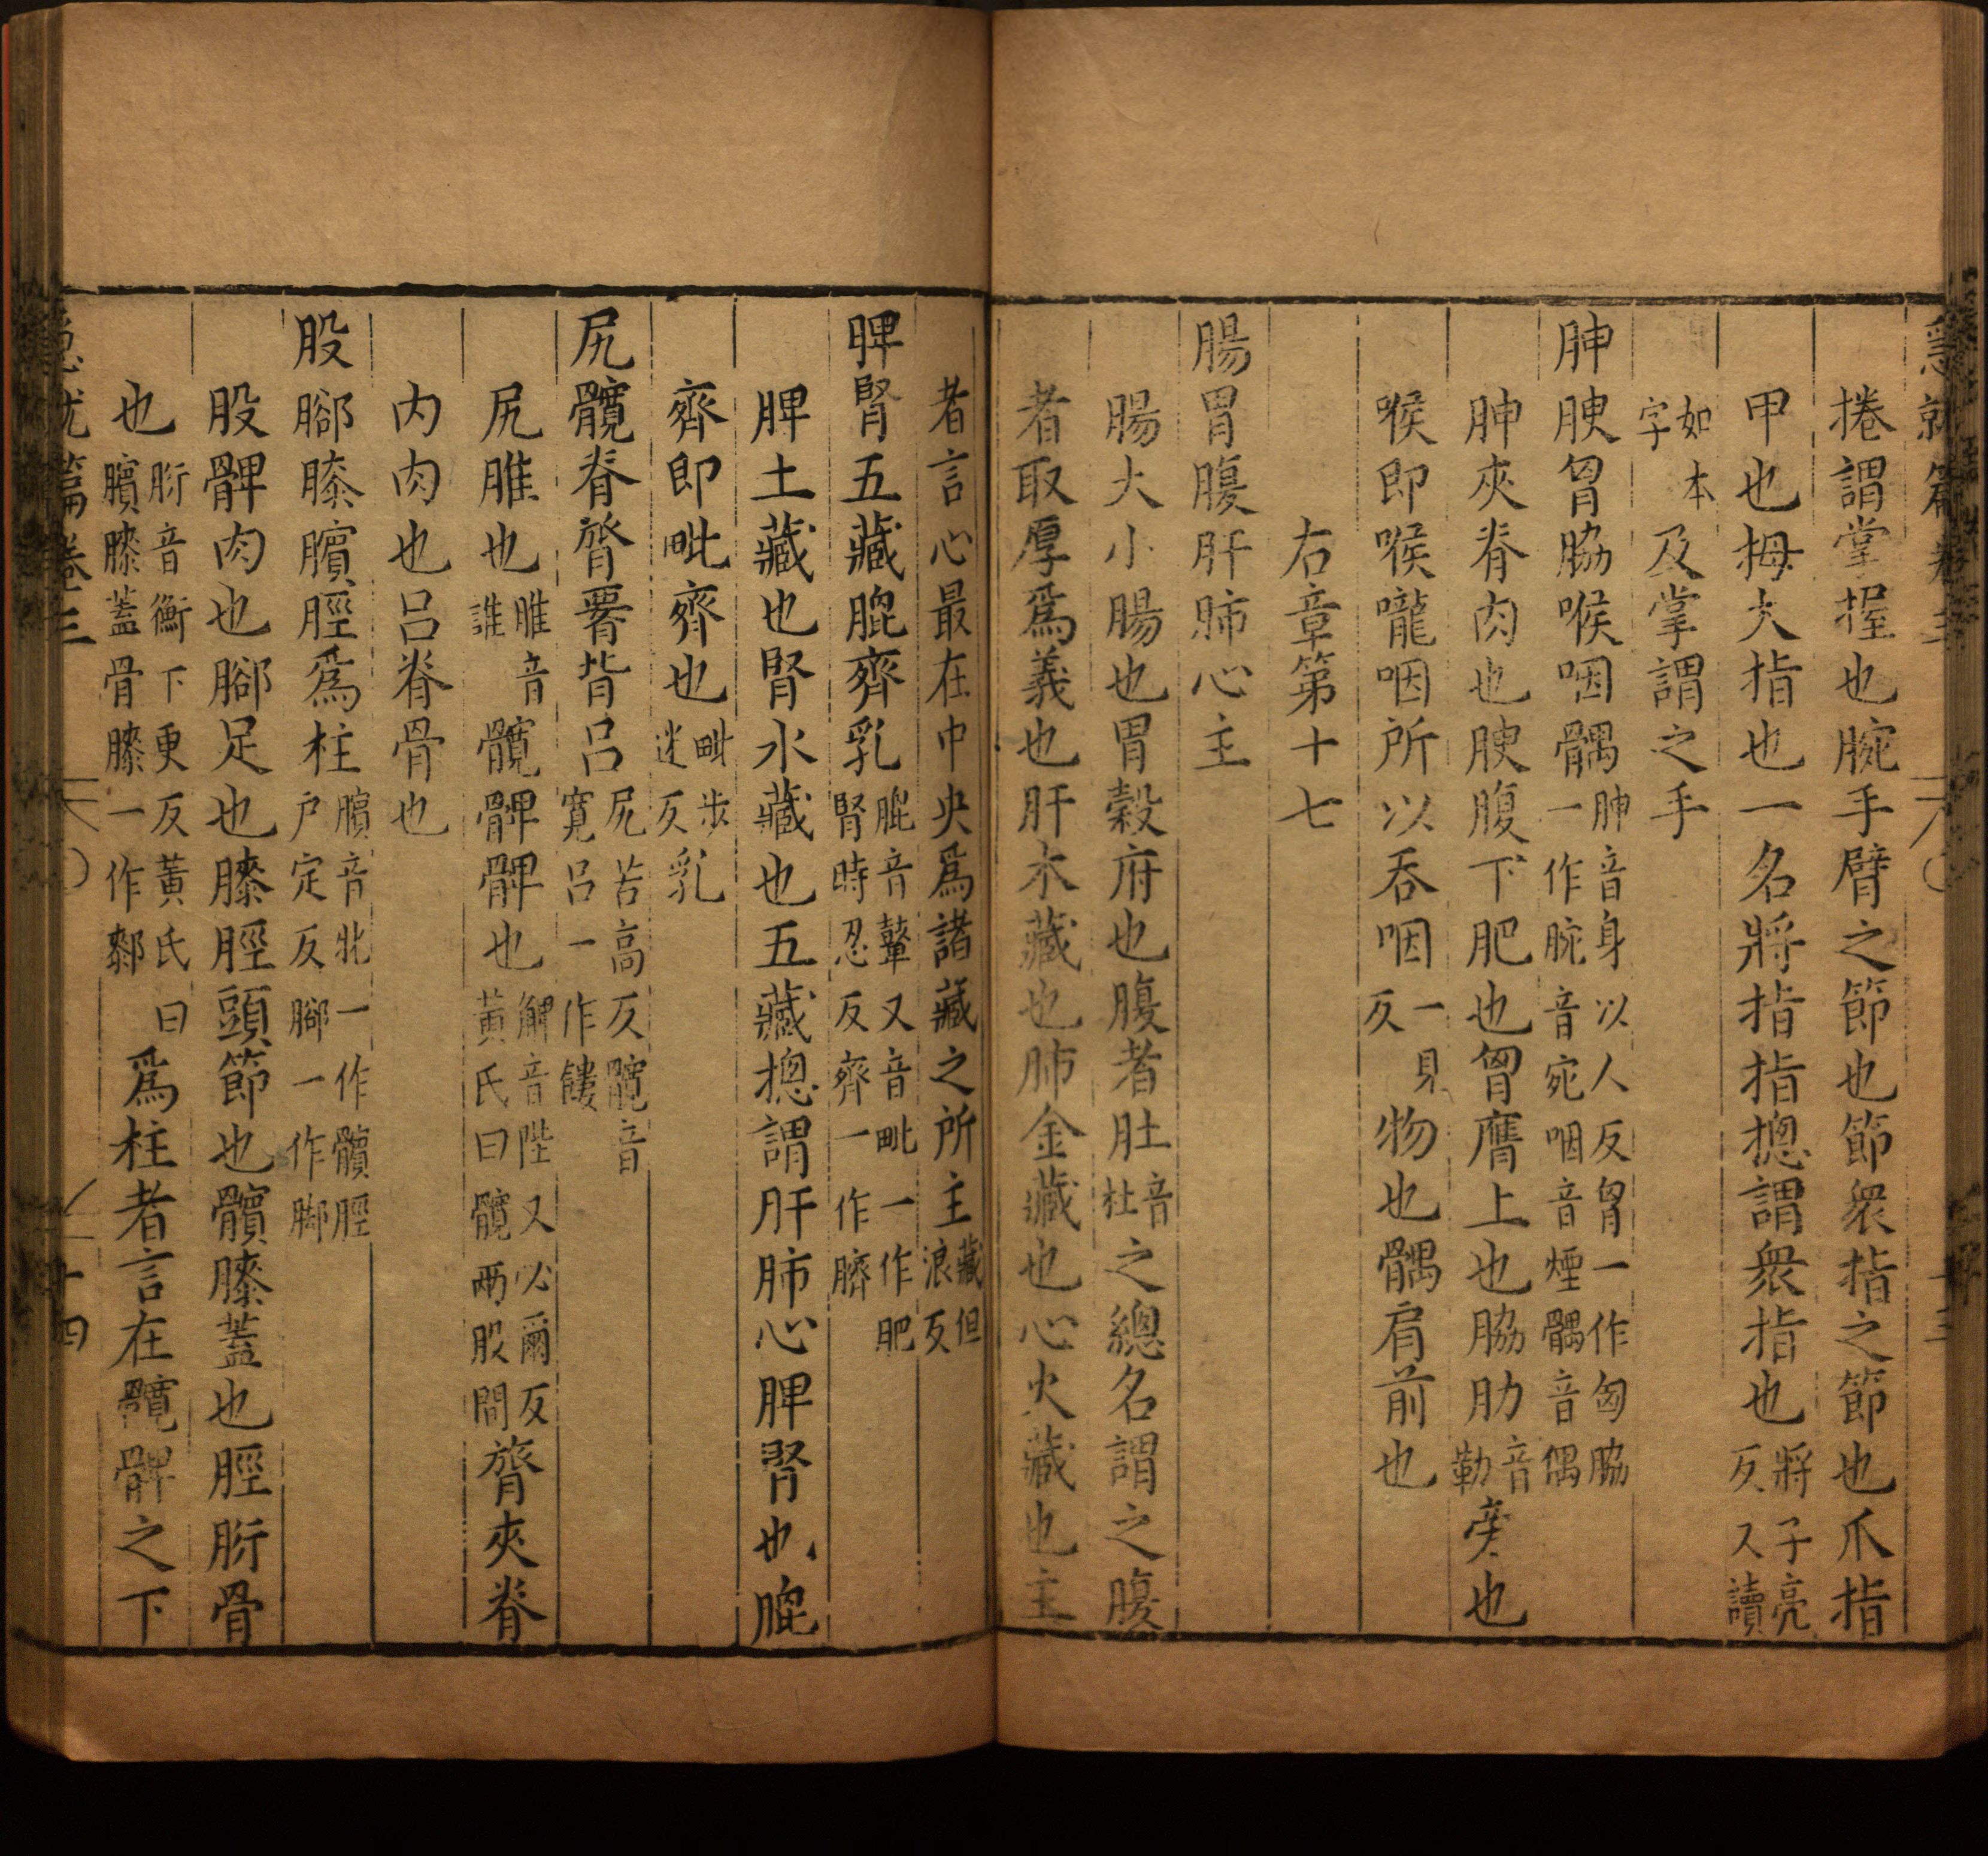 急就篇卷三
捲謂掌握也腕手臂之節也節衆指之節也爪指
甲也拇大指也一名將指指揔謂衆指也將子亮反又讀
如本字及掌謂之手
胂腴胷脇喉咽髃胂音身以人反胷一作匈脇一作腕音宛咽音煙髃音偶
胂夾脊肉也腴腹下肥也胷膺上也脇肋音勒旁也
喉即喉嚨咽所以吞咽一見反物也髃肩前也
右章第十七
腸胃腹肝肺心主
腸大小腸也胃穀府也腹者肚音杜之總名謂之腹
者取厚爲義也肝木藏也肺金藏也心火藏也主
者言心最在中央爲諸藏之所主藏但浪反
脾腎五藏膍齊乳膍音鼙又音毗一作肥腎時忍反齊一作臍
脾土藏也腎水藏也五藏揔謂肝肺心脾腎也膍
齊即毗齊也毗步迷反乳
尻髖脊膂署背呂尻苦高反髖音寬呂一作𩩍
尻脽也脽音誰髖髀髀也髀音陛又必爾反黃氏曰髖兩股間膂夾脊
內肉也呂脊骨也
股腳膝臏脛爲柱臏音牝一作髕脛戶定反腳一作脚
股髀肉也腳足也膝脛頭節也髕膝蓋也脛胻骨
也胻音衡下更反黃氏曰臏膝蓋骨膝一作厀爲柱者言在髖髀之下
急就篇卷三
十四